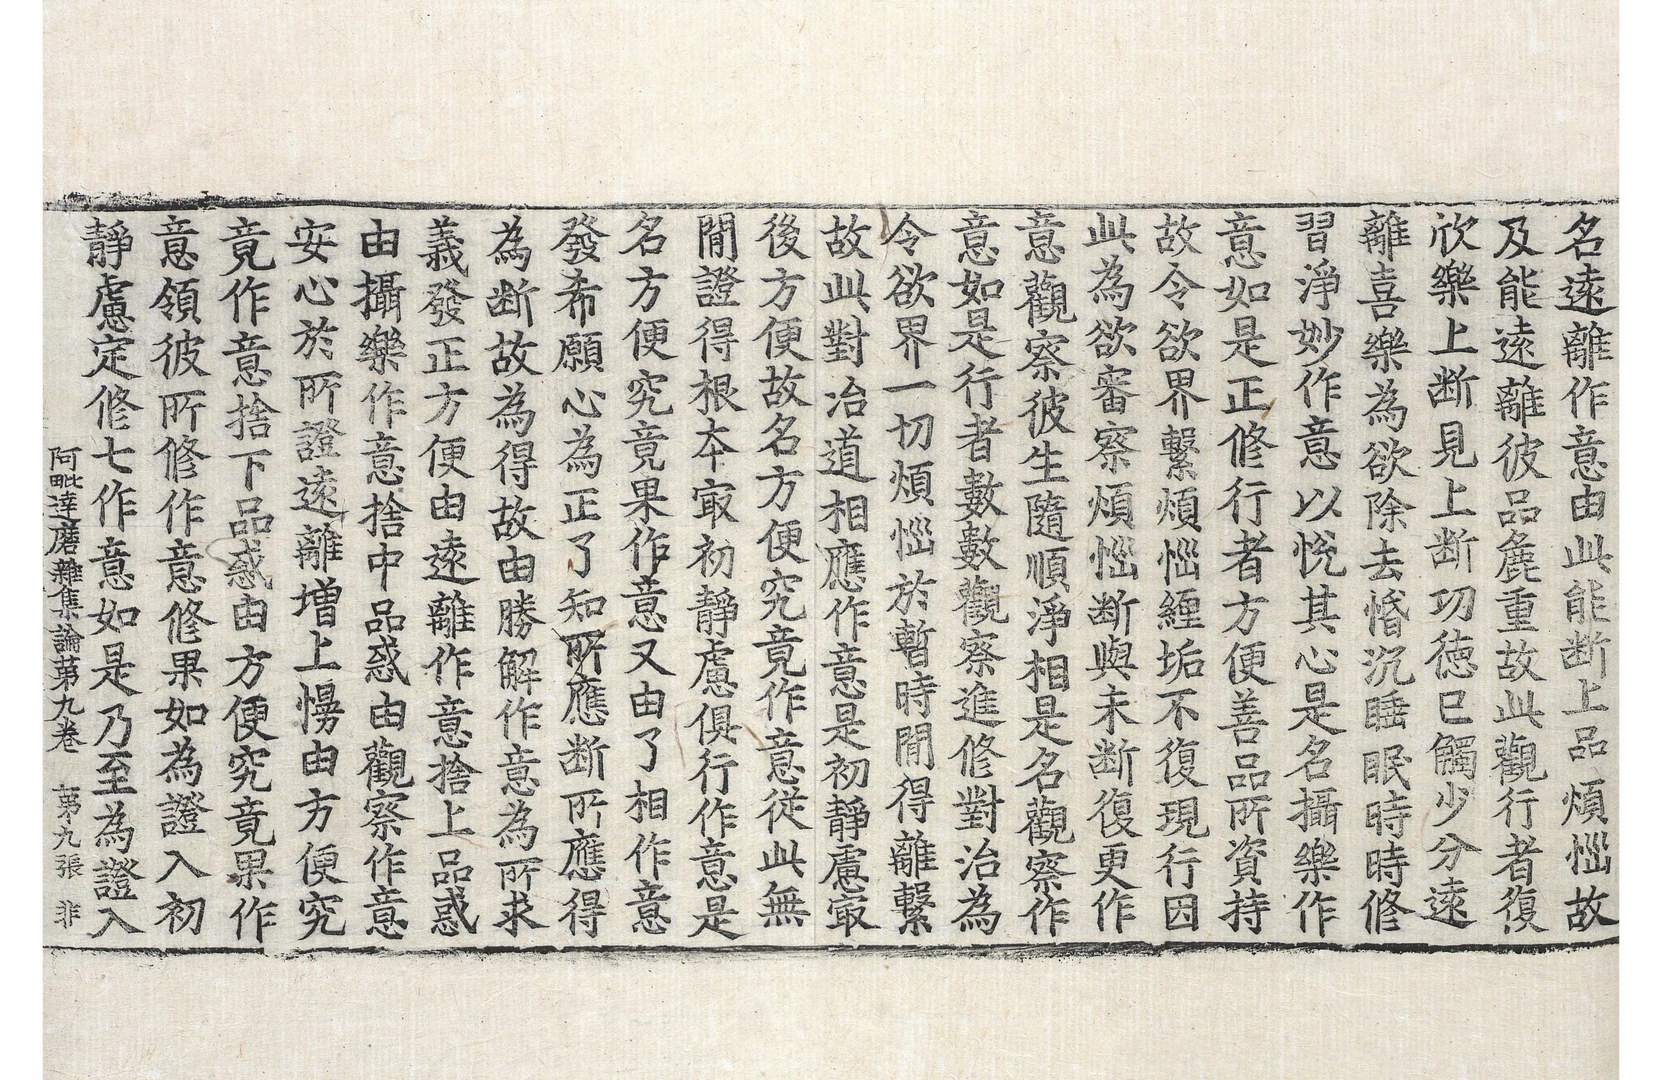 名遠離作意由此能断上品煩惱故
及能遠離彼品麁重故此觀行者復
欣樂上断見上断功徳已觸少分遠
離喜樂為欲除去惛沉睡眠時時修
習淨妙作意以恱其心是名攝樂作
意如是正修行者方便善品所資持
故令欲界繫煩惱纏垢不復現行因
此為欲審察煩惱断與未断復更作
意觀察彼生隨順淨相是名觀察作
意如是行者數數觀察進修對治為
令欲界一切煩惱於暫時閒得離繫
故此對治道相應作意是初靜慮㝡
後方便故名方便究竟作意從此無
閒證得根本㝡初靜慮俱行作意是
名方便究竟果作意又由了相作意
發希願心為正了知所應断所應得
為断故為得故由勝解作意為所求
義發正方便由遠離作意捨上品惑
由攝樂作意捨中品惑由觀察作意
安心於所證遠離增上慢由方便究
竟作意捨下品惑由方便究竟果作
意領彼所修作意修果如為證入初
靜慮定修七作意如是乃至為證入
阿毗達磨雜集論苐九卷 苐九張 非